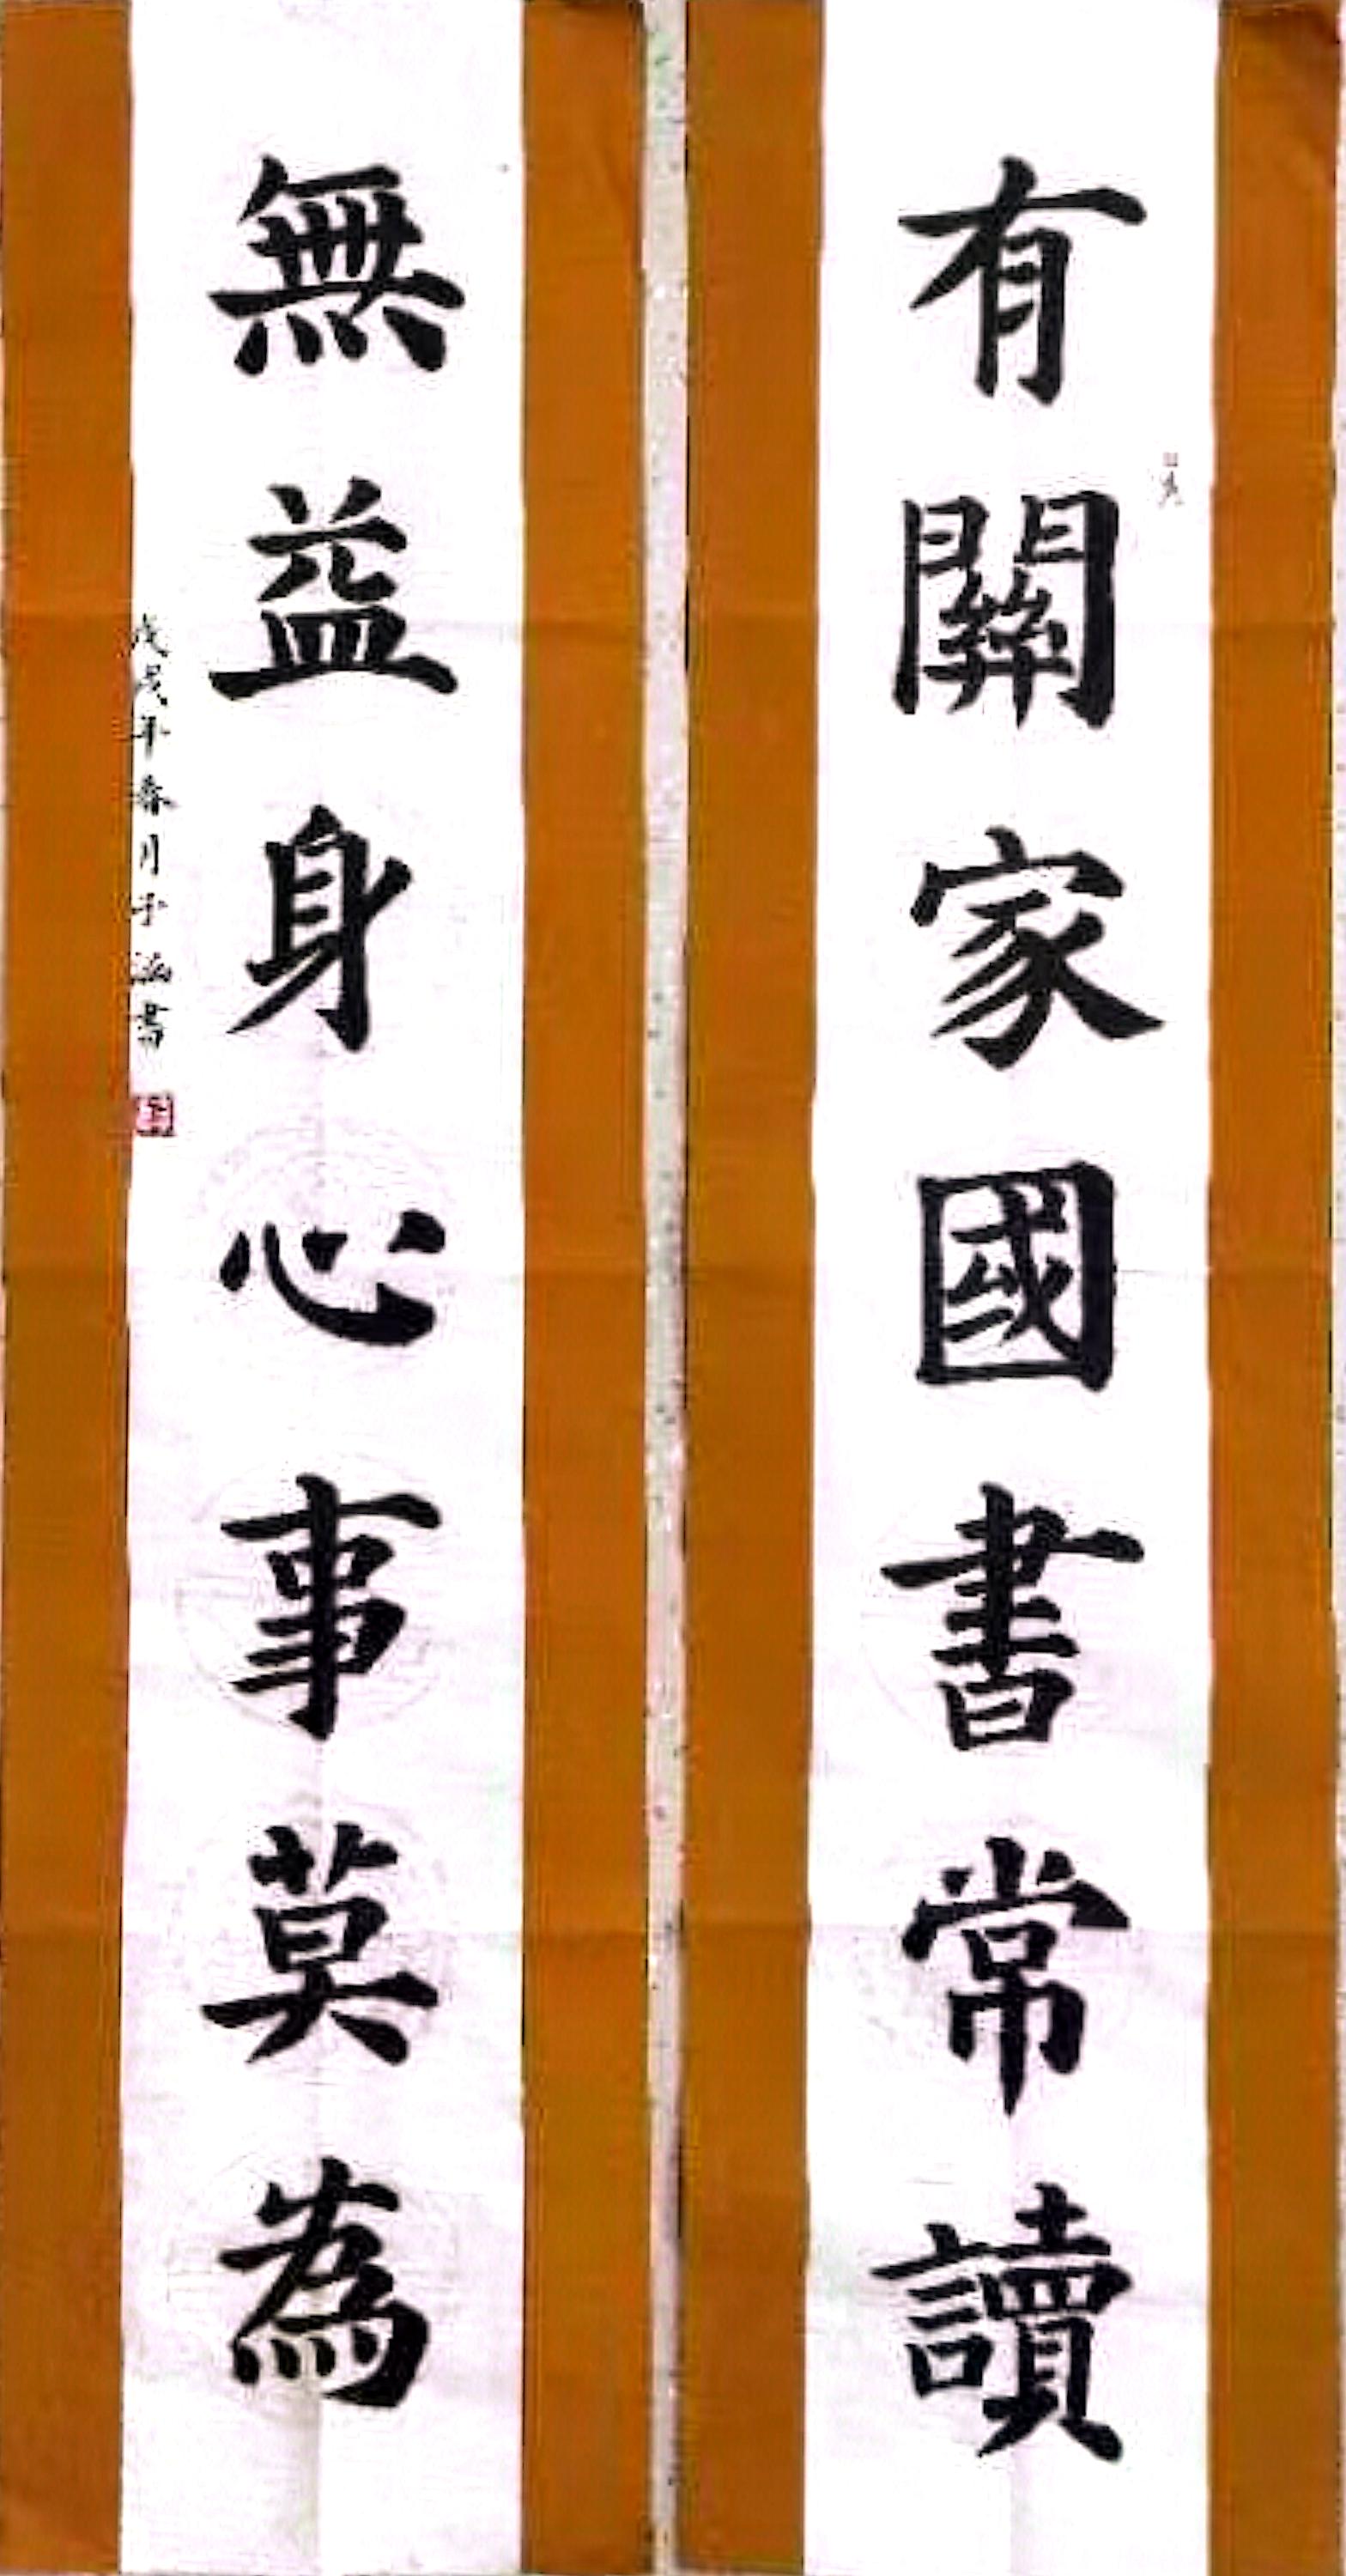 有關家國書常讀
無益身心事莫為
戊戌年春月子涵書